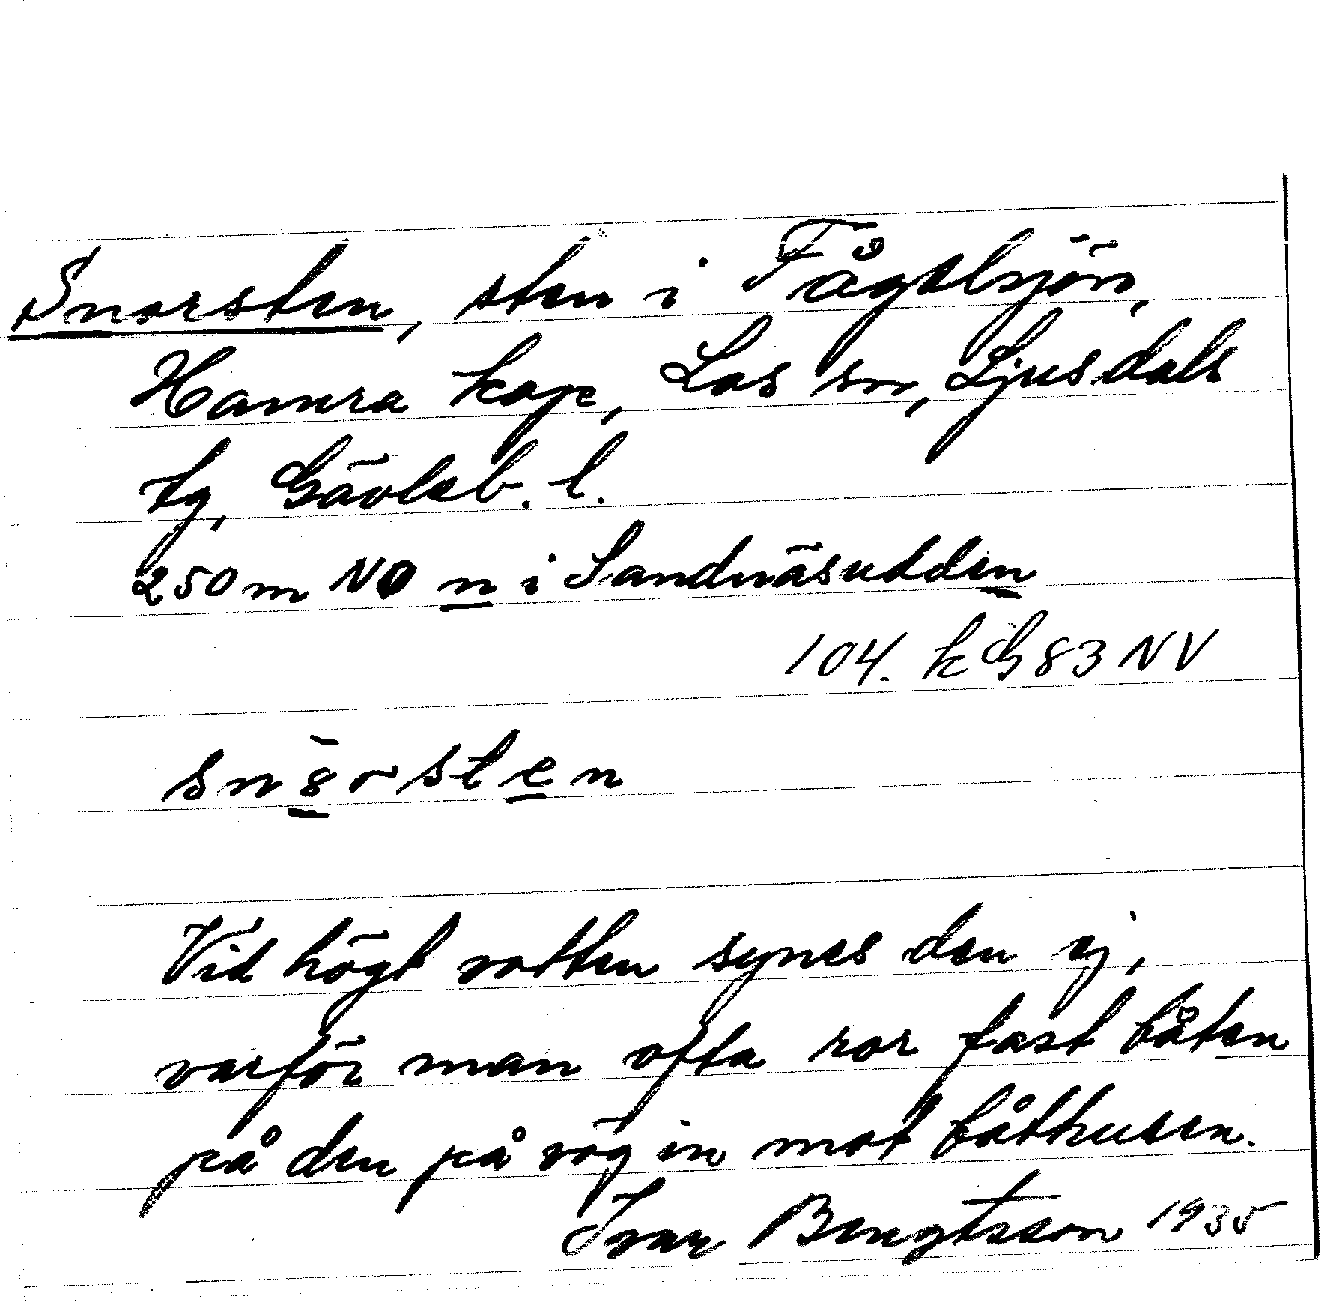 Snorsten, sten i Fågelsjön,
Hamra kap, Los sn, Ljusdals
tg, Gävleb. l.
250 m NO n i Sandnäsudden
104. k G 83 NV
snorsten
Vid högt vatten synes den ej,
varför man ofta ror fast båten
på den på väg in mot båthusen.
Ivar Bengtsson 1935